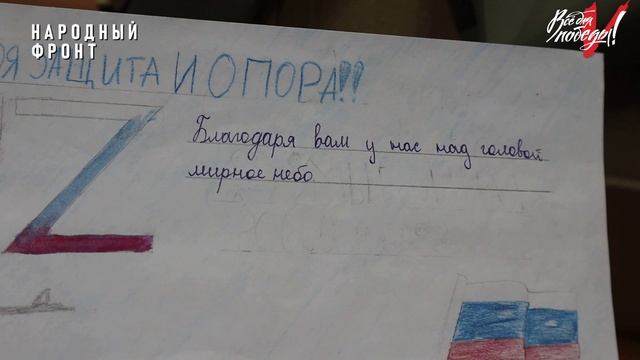 НАРОДНЫЙ
ФРОНТ
Всё для
победы!
ОЯ ЗАЩИТА И ОПОРА!!
Z
Благодаря вам у нас над головой
мирное небо.